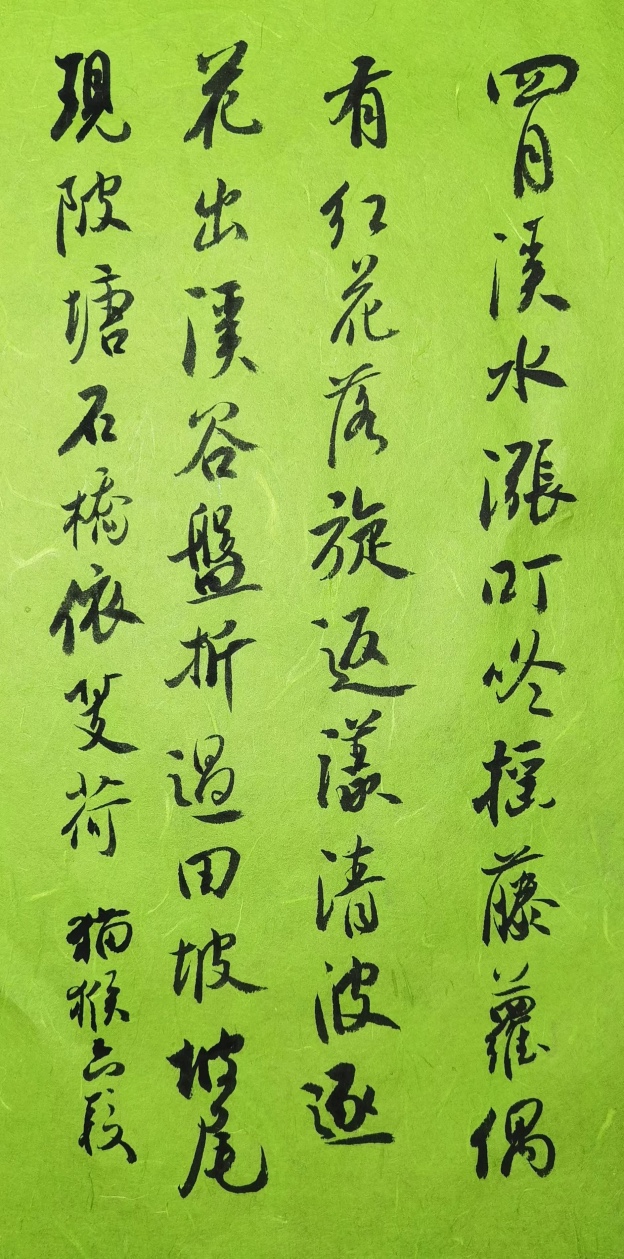 四月溪水漲叮咚搖藤蘿偶
有紅花落旋返漾清波逐
花出溪谷盤折過田坡坡尾
現陂塘石橋依芰荷
猫猴六段